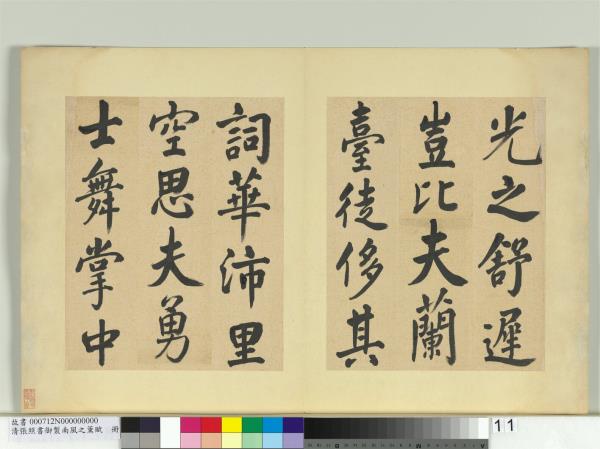 光之舒遲
豈比夫蘭
臺徒侈其
詞華沛里
空思夫勇
士舞掌中
故書 000712N000000000
清張照書御製南風之薰賦 冊
11